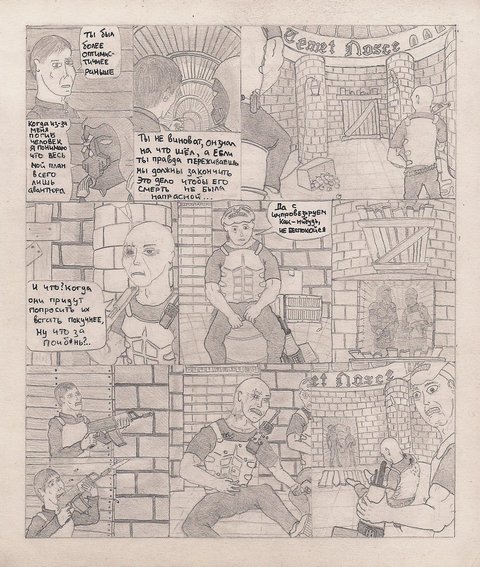 ты был
более
оптимис-
тичнее
раньше
Когда из-за
меня
погиб
человек
я понимаю
что весь
мой план
всего
лишь
авантюра
Ты не виноват, он знал
на что шёл, а если
ты правда переживаешь
мы должны закончить
это дело чтобы его
смерть не была
напрасной...
Temet Nosce
И что? Когда
они придут
попросить их
встать покучнее,
ну что за
Да с
импровезируем
как-нибудь,
не беспокойся
temet Nosce